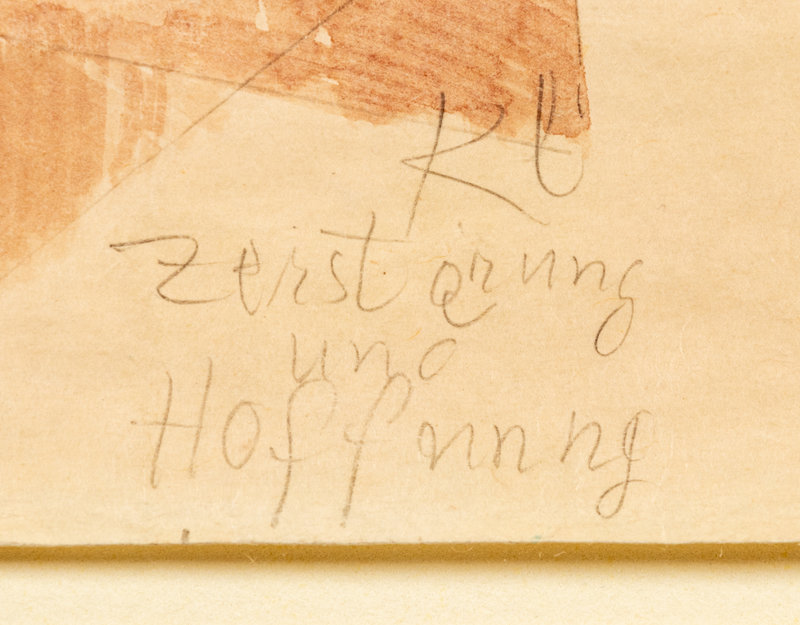 Zerstörung
und
Hoffnung